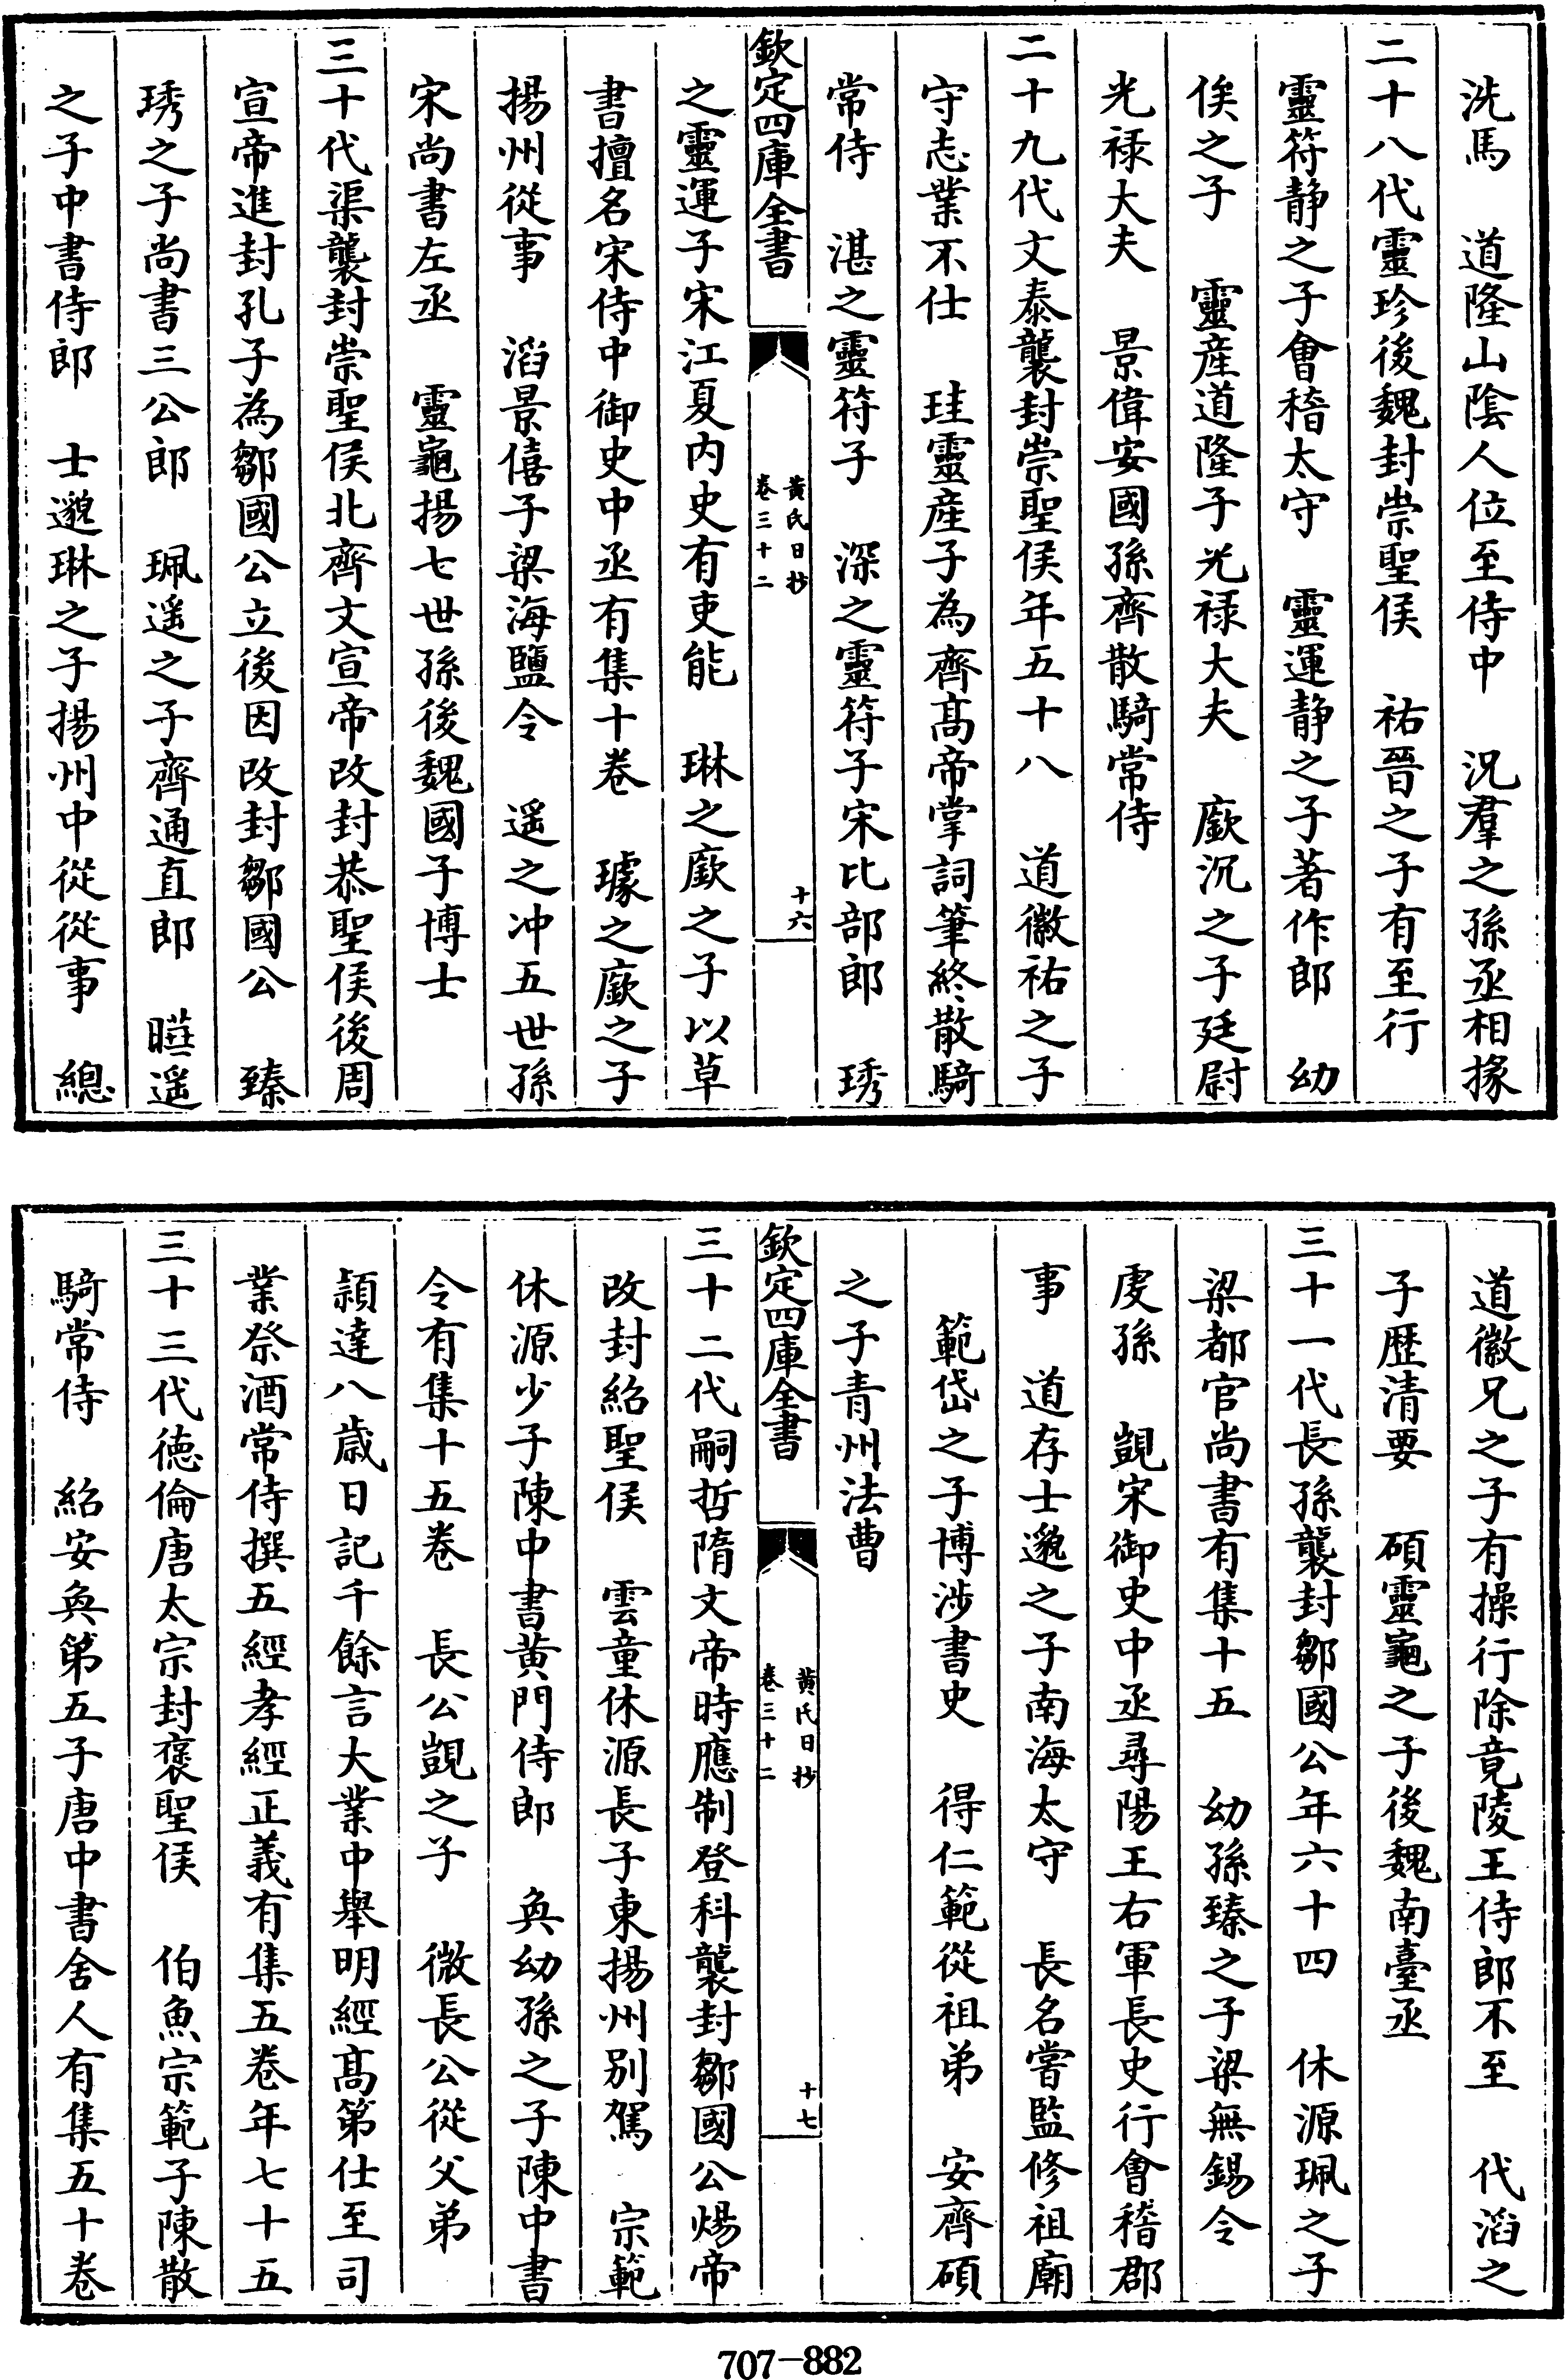 洗馬　道隆山隂人位至侍中　況羣之孫丞相掾
二十八代靈珍後魏封崇聖侯　祐晉之子有至行
靈符静之子會稽太守　靈運静之子著作郎　幼
俟之子　靈産道隆子光禄大夫　廞沉之子廷尉
光禄大夫　景偉安國孫齊散騎常侍
二十九代文泰襲封崇聖侯年五十八　道徽祐之子
守志業不仕　珪靈産子為齊髙帝掌詞筆終散騎
常侍　湛之靈符子　深之靈符子宋比部郎　琇
欽定四庫全書
黄氏日抄
卷三十二
十六
之靈運子宋江夏内史有吏能　琳之廞之子以草
書擅名宋侍中御史中丞有集十卷　璩之廞之子
揚州從事　滔景僖子梁海鹽令　遥之冲五世孫
宋尚書左丞　靈龜揚七世孫後魏國子博士
三十代渠襲封崇聖侯北齊文宣帝改封恭聖侯後周
宣帝進封孔子為鄒國公立後因改封鄒國公　臻
琇之子尚書三公郎　珮遥之子齊通直郎　㬢遥
之子中書侍郎　士邈琳之子揚州中從從事　總
道徽兄之子有操行除竟陵王侍郎不至　代滔之
子歴清要　碩靈龜之子後魏南臺丞
三十一代長孫襲封鄒國公年六十四　休源珮之子
梁都官尚書有集十五　幼孫臻之子梁無錫令
虔孫　覬宋御史中丞尋陽王右軍長史行會稽郡
事　道存士邈之子南海太守　長名嘗監修祖廟
範岱之子博涉書史　得仁範從祖弟　安齊碩
之子青州法曹
欽定四庫全書
黄氏日抄
卷三十二
十七
三十二代嗣哲隋文帝時應制登科襲封鄒國公煬帝
改封紹聖侯　雲童休源長子東揚州别駕　宗範
休源少子陳中書黄門侍郎　奐幼孫之子陳中書
令有集十五卷　長公覬之子　微長公從父弟
頴達八歳日記千餘言大業中舉明經髙第仕至司
業祭酒常侍撰五經孝經正義有集五卷年七十五
三十三代徳倫唐太宗封褒聖侯　伯魚宗範子陳散
騎常侍　紹安奐第五子唐中書舍人有集五十卷
707-882